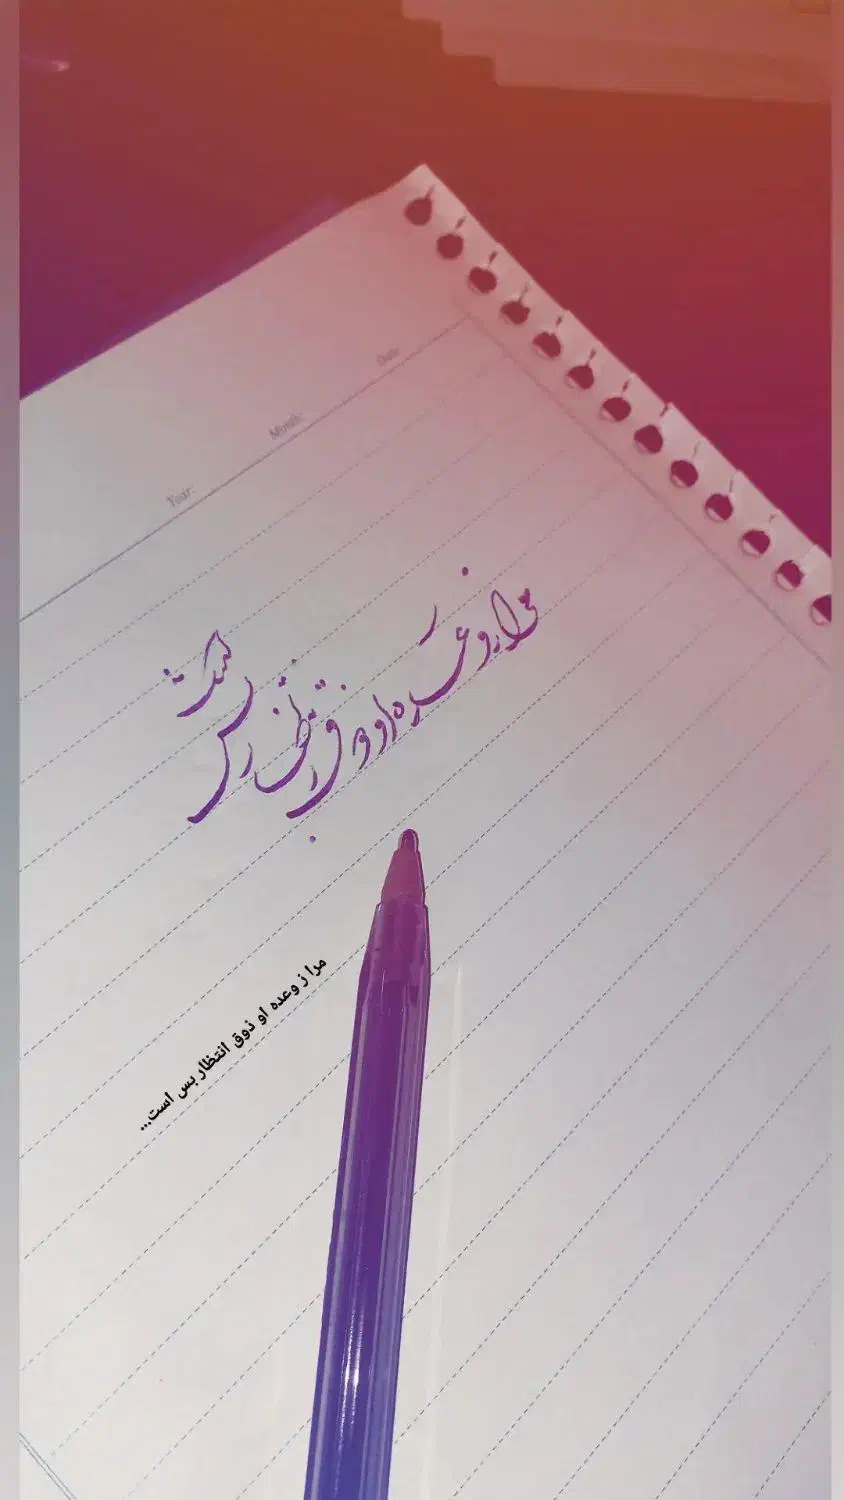 Year:
Month:
Date:
مرا ز وعده او ذوق انتظار بس است
مرا ز وعده او ذوق انتظار بس است...